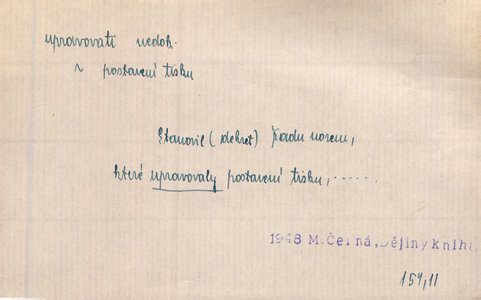 upravovati nedok.
~ postavení tisku
Stanovil (dekret) řadu norem,
které upravovaly postavení tisku, ......
1948 M.Černá,Dějiny knihk.
154,11